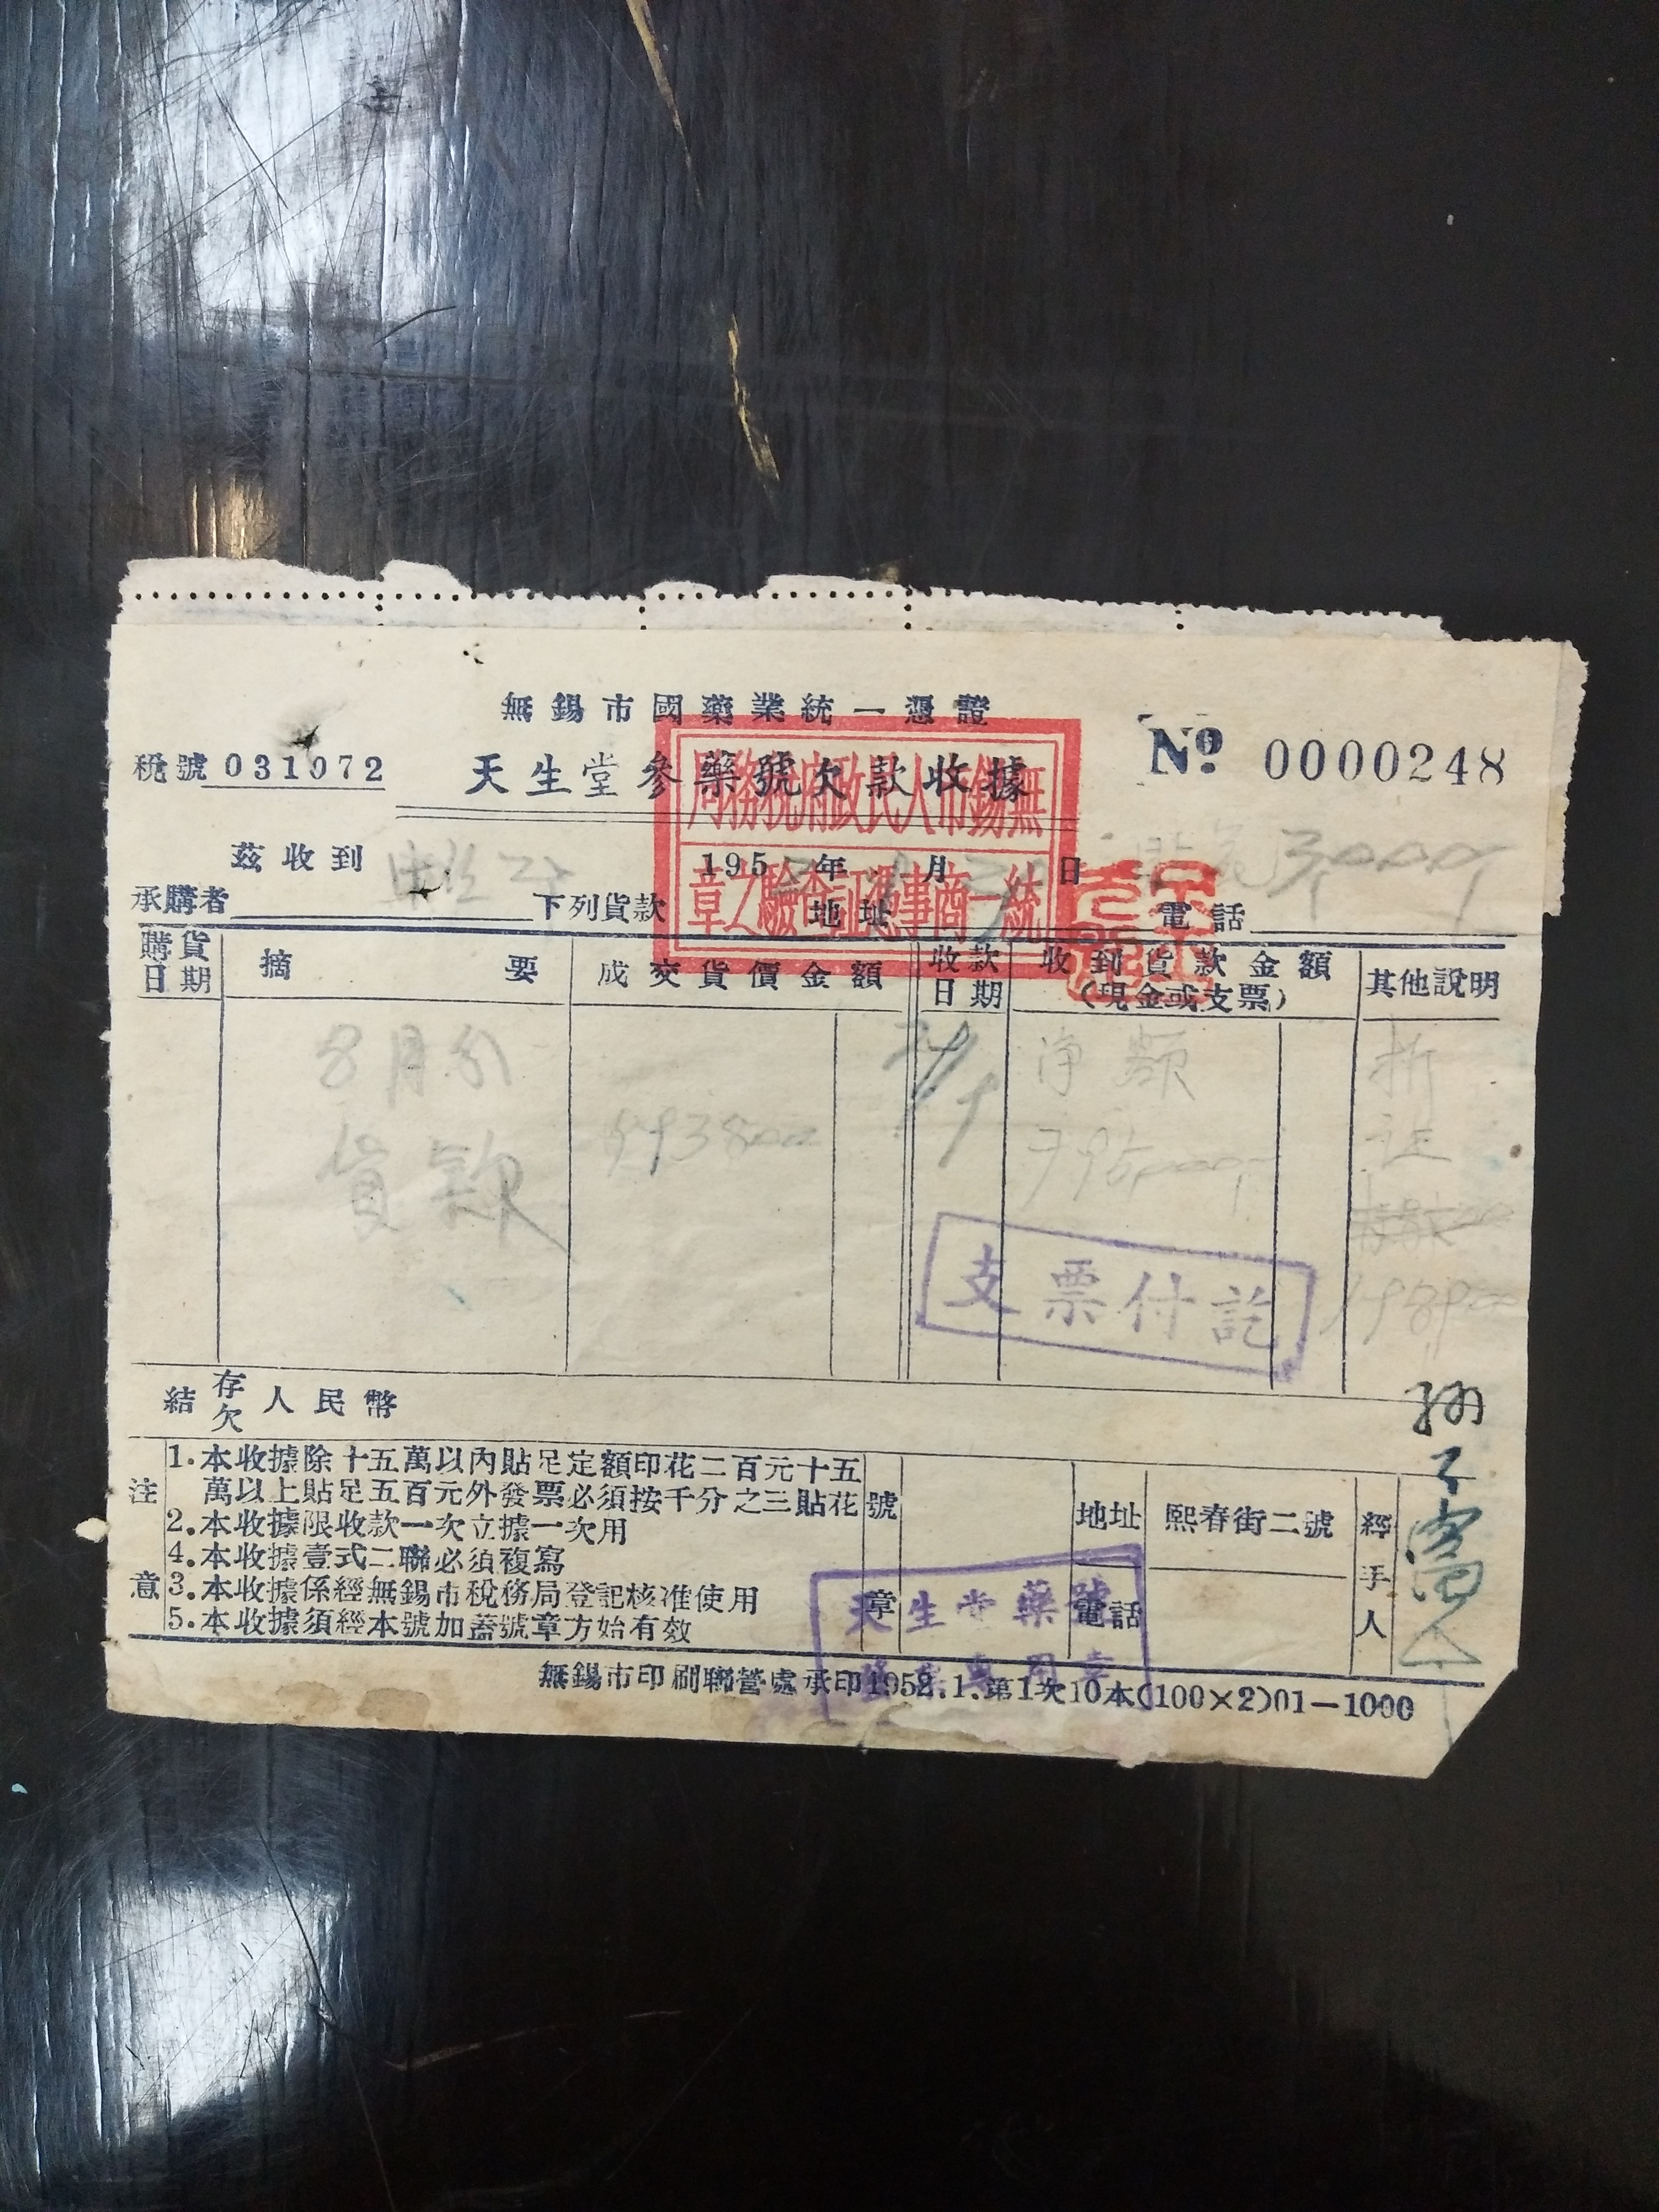 無錫市國藥業統一憑證
稅號 031072
天生堂參藥號欠款收據
№ 0000248
無錫市人民政府稅務局
統一商事憑証查驗之章
茲收到
195 年 月 日
承購者 下列貨款 地址 電話
購貨日期 摘要 成交貨價金額 收款日期 收到貨款金額(現金或支票) 其他說明
8月份 淨額 折
貨款
支票付訖
結存欠人民幣
注意
1.本收據除十五萬以內貼足定額印花二百元十五
萬以上貼足五百元外發票必須按千分之三貼花
2.本收據限收款一次立據一次用
4.本收據壹式二聯必須複寫
3.本收據係經無錫市稅務局登記核准使用
5.本收據須經本號加蓋號章方始有效
號章
地址 熙春街二號
電話
經手人
天生堂藥號
無錫市印刷聯營處承印1952.1.第1次10本(100×2)01—1000